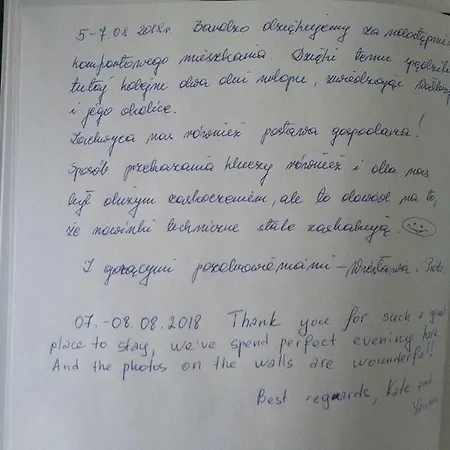 5-7.08 2018r. Bardzo dziękujemy za udostępnienie
komfortowego mieszkania. Dzięki temu spędziliśmy
tutaj kolejne dwa dni urlopu, zwiedzając
i jego okolice.
Zachwyca nas również postawa gospodarza!
Sposób przekazania kluczy również i dla nas
był dużym zaskoczeniem, ale to dowód na to,
że nowinki techniczne stale zaskakują.
Z gorącymi pozdrowieniami - Wiesława i
07.-08.08.2018 Thank you for such a good
place to stay, we've spend perfect evening here
And the photos on the walls are wounderful!!
Best regards, Kate and